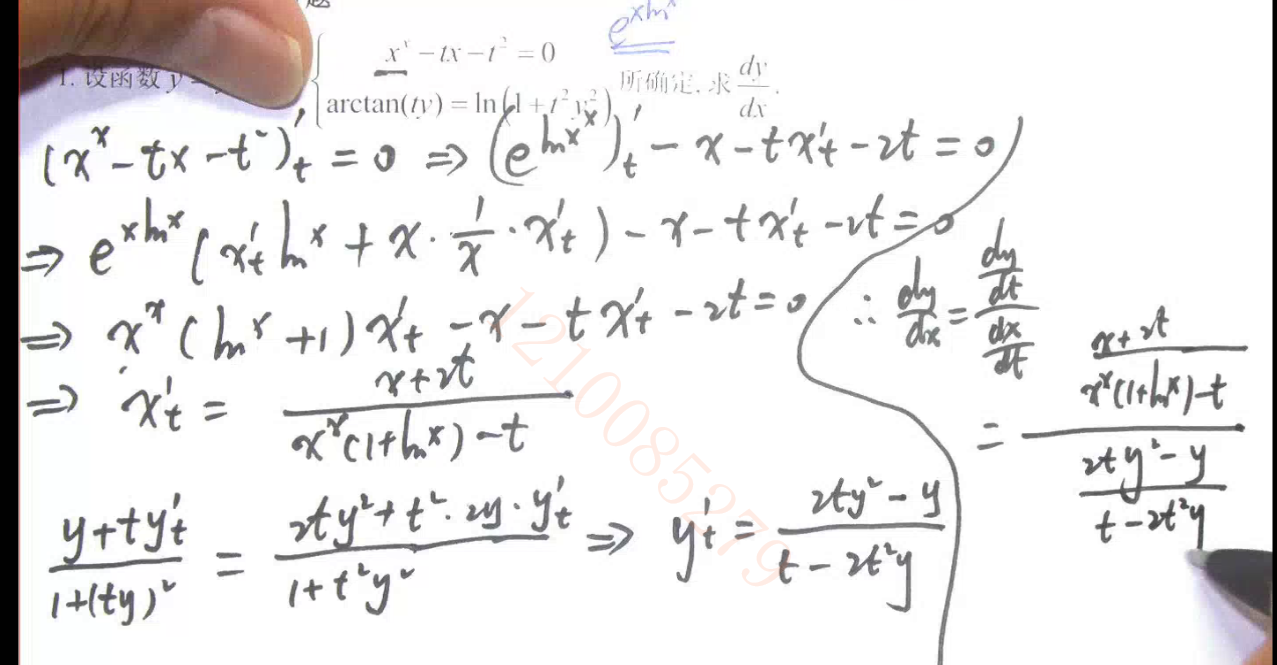 题
e^{x ln x}
1. 设函数 y =
x^x − tx − t² = 0
arctan(ty) = ln(1 + t²y²)
所确定. 求 dy/dx.
(x^x − tx − t²)'_t = 0 ⇒ (e^{ln x^x})'_t − x − t x'_t − 2t = 0
⇒ e^{x ln x}(x'_t ln x + x · 1/x · x'_t) − x − t x'_t − 2t = 0
⇒ x^x(ln x + 1) x'_t − x − t x'_t − 2t = 0
⇒ x'_t = (x + 2t)/(x^x(1 + ln x) − t)
(y + t y'_t)/(1 + (ty)²) = (2ty² + t² · 2y · y'_t)/(1 + t²y²) ⇒ y'_t = (2ty² − y)/(t − 2t²y)
∴ dy/dx = (dy/dt)/(dx/dt)
= ((x + 2t)/(x^x(1 + ln x) − t))/((2ty² − y)/(t − 2t²y))
1210085279